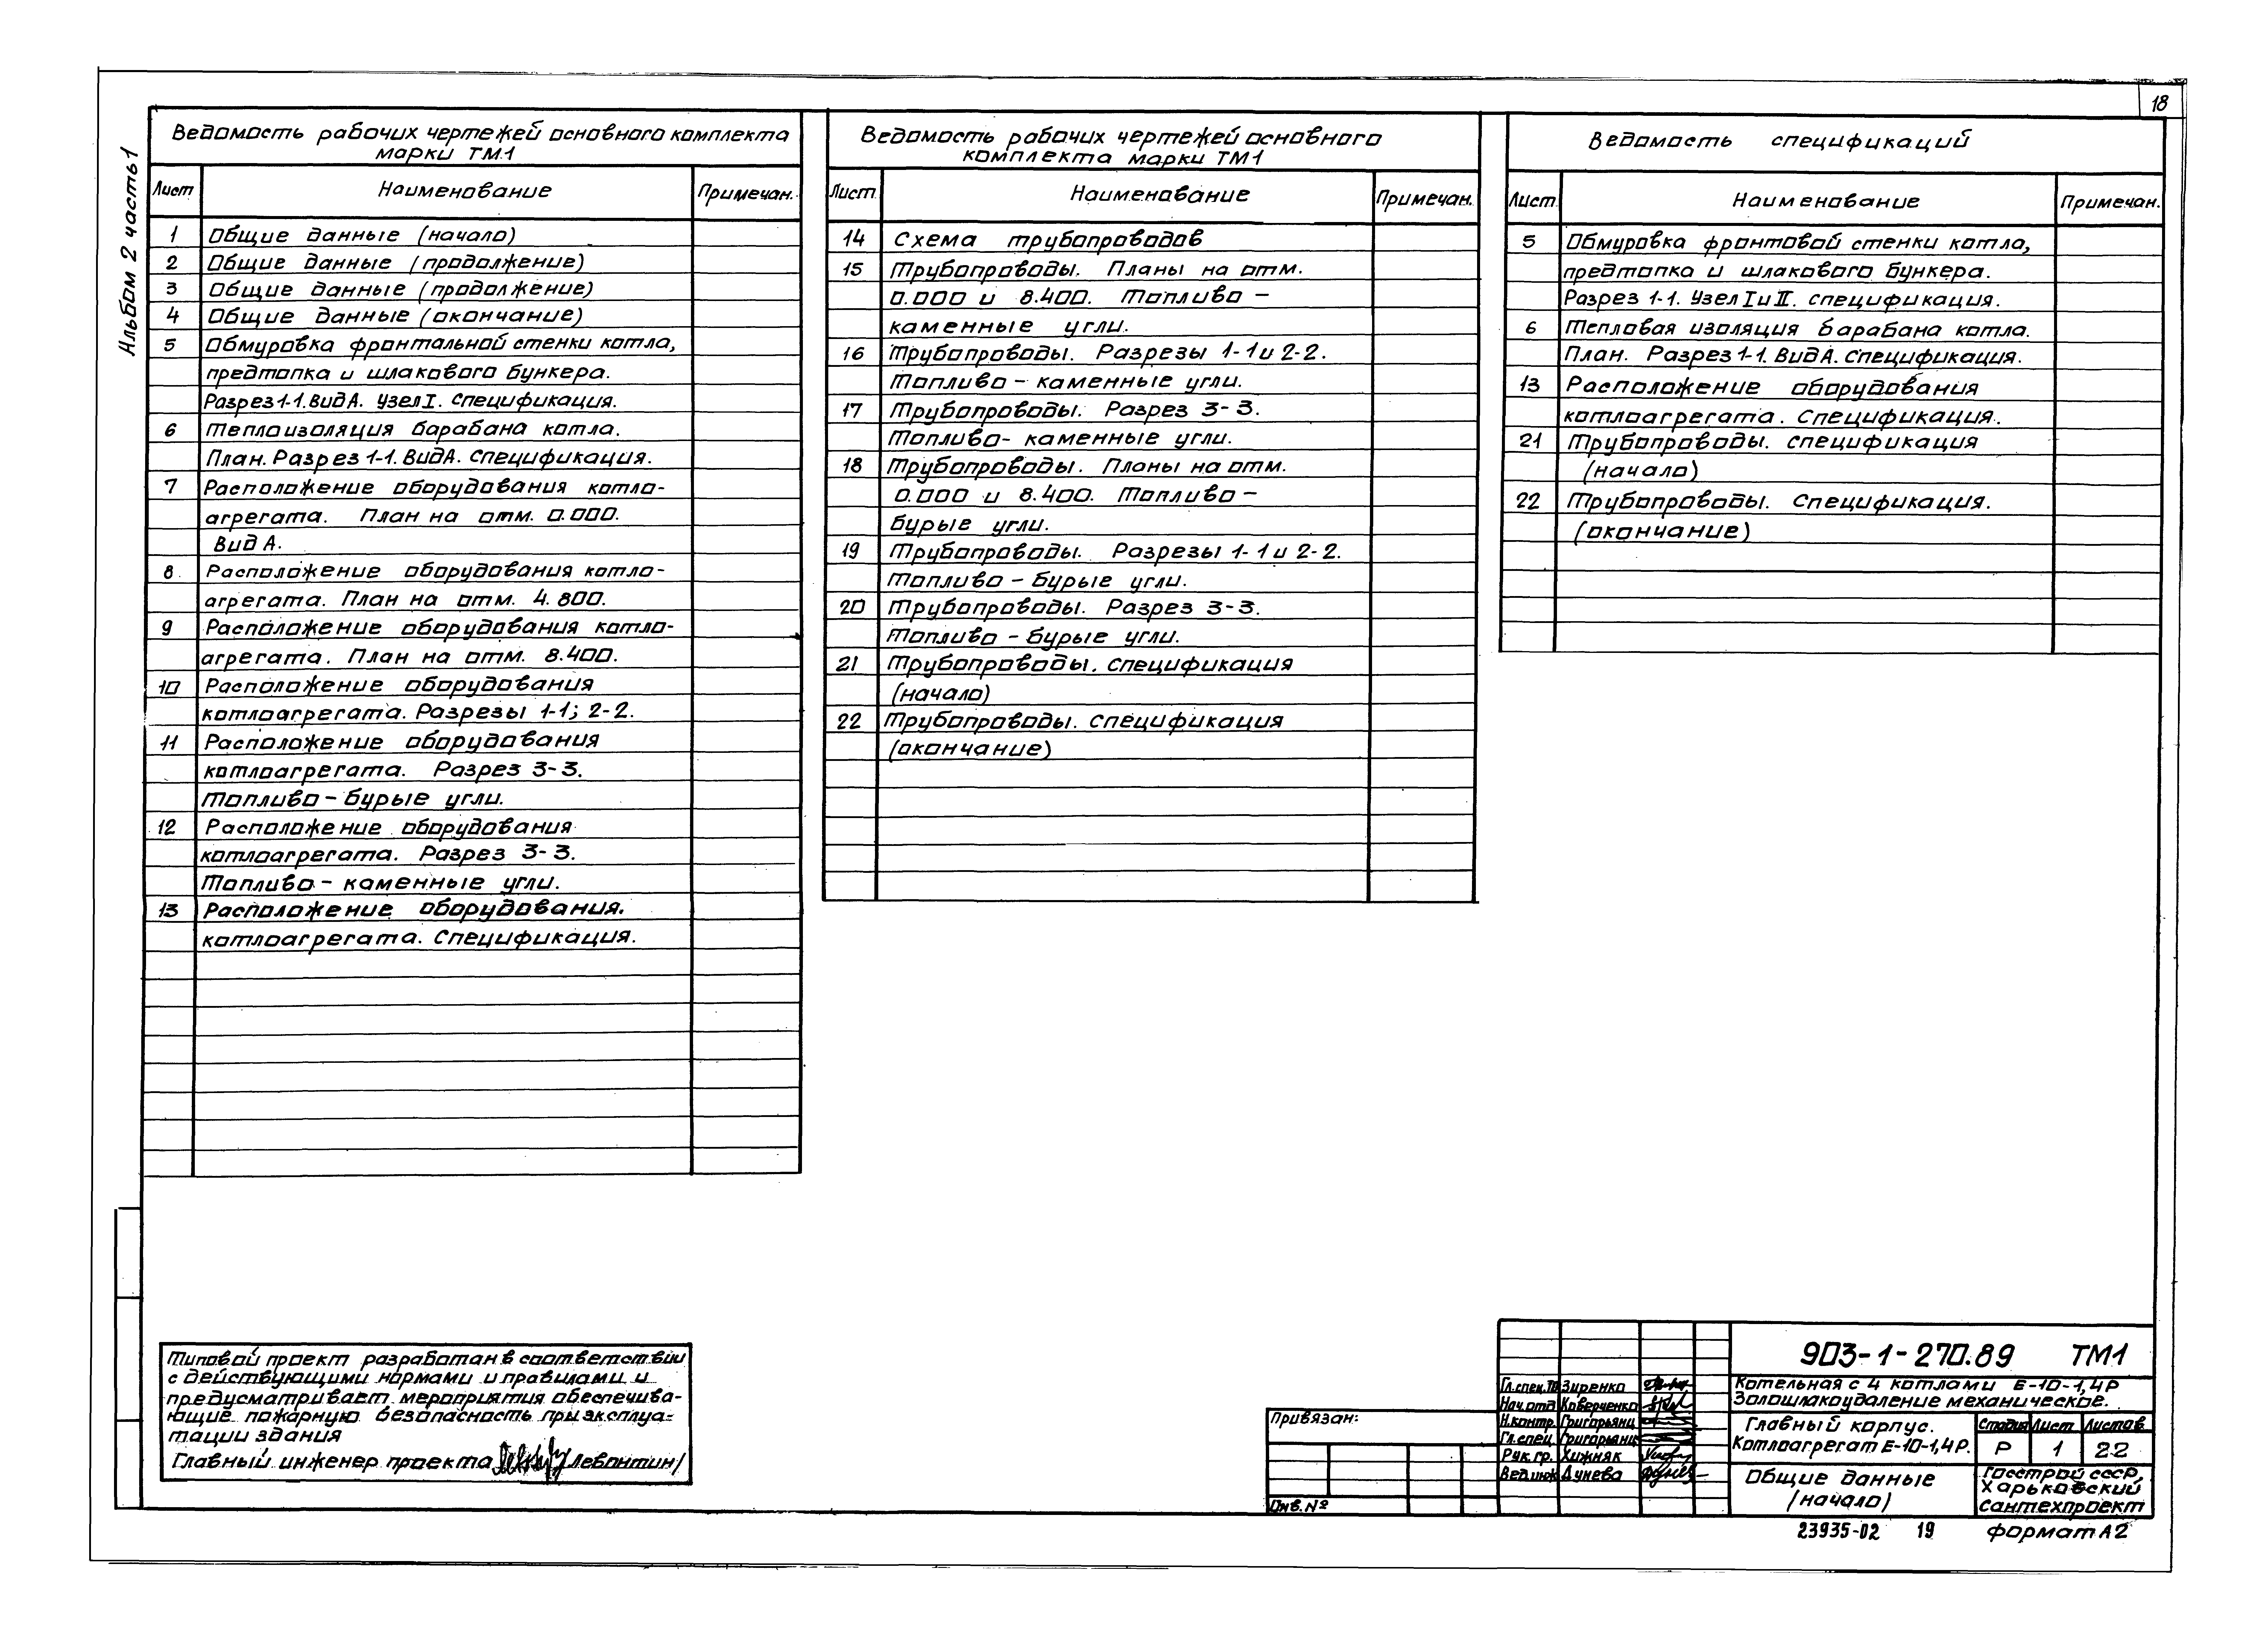 18
Альбом 2 часть 1
Ведомость рабочих чертежей основного комплекта
марки ТМ1
Лист Наименование Примечан.
1 Общие данные (начало)
2 Общие данные (продолжение)
3 Общие данные (продолжение)
4 Общие данные (окончание)
5 Обмуровка фронтальной стенки котла,
предтопка и шлакового бункера.
Разрез 1-1. Вид А. Узел I. Спецификация.
6 Теплоизоляция барабана котла.
План. Разрез 1-1. Вид А. Спецификация.
7 Расположение оборудования котло-
агрегата. План на отм. 0.000.
Вид А.
8 Расположение оборудования котло-
агрегата. План на отм. 4.800.
9 Расположение оборудования котло-
агрегата. План на отм. 8.400.
10 Расположение оборудования
котлоагрегата. Разрезы 1-1; 2-2.
11 Расположение оборудования
котлоагрегата. Разрез 3-3.
Топливо - бурые угли.
12 Расположение оборудования
котлоагрегата. Разрез 3-3.
Топливо - каменные угли.
13 Расположение оборудования.
котлоагрегата. Спецификация.
Ведомость рабочих чертежей основного
комплекта марки ТМ1
Лист Наименование Примечан.
14 Схема трубопроводов
15 Трубопроводы. Планы на отм.
0.000 и 8.400. Топливо -
каменные угли.
16 Трубопроводы. Разрезы 1-1 и 2-2.
Топливо - каменные угли.
17 Трубопроводы. Разрез 3-3.
Топливо - каменные угли.
18 Трубопроводы. Планы на отм.
0.000 и 8.400. Топливо -
бурые угли.
19 Трубопроводы. Разрезы 1-1 и 2-2.
Топливо - бурые угли.
20 Трубопроводы. Разрез 3-3.
Топливо - бурые угли.
21 Трубопроводы. Спецификация
(начало)
22 Трубопроводы. Спецификация
(окончание)
Ведомость спецификаций
Лист Наименование Примечан.
5 Обмуровка фронтовой стенки котла,
предтопка и шлакового бункера.
Разрез 1-1. Узел I и II. Спецификация.
6 Тепловая изоляция барабана котла.
План. Разрез 1-1. Вид А. Спецификация.
13 Расположение оборудования
котлоагрегата. Спецификация.
21 Трубопроводы. Спецификация
(начало)
22 Трубопроводы. Спецификация.
(окончание)
Типовой проект разработан в соответствии
с действующими нормами и правилами и
предусматривает мероприятия обеспечива-
ющие пожарную безопасность при эксплуа-
тации здания
Главный инженер проекта /Левонтин/
Привязан:
Инв. №
Гл. спец. ТО Зиренко
Нач. отд Коверченко
Н. контр. Григорьянц
Гл. спец. Григорьянц
Рук. гр. Хижняк
Вед. инж Дунева
903-1-270.89 ТМ1
Котельная с 4 котлами Е-10-1,4Р
Золошлакоудаление механическое.
Главный корпус.
Котлоагрегат Е-10-1,4Р.
Стадия Лист Листов
Р 1 22
Общие данные
(начало)
Госстрой СССР,
Харьковский
Сантехпроект
23935-02 19 формат А2